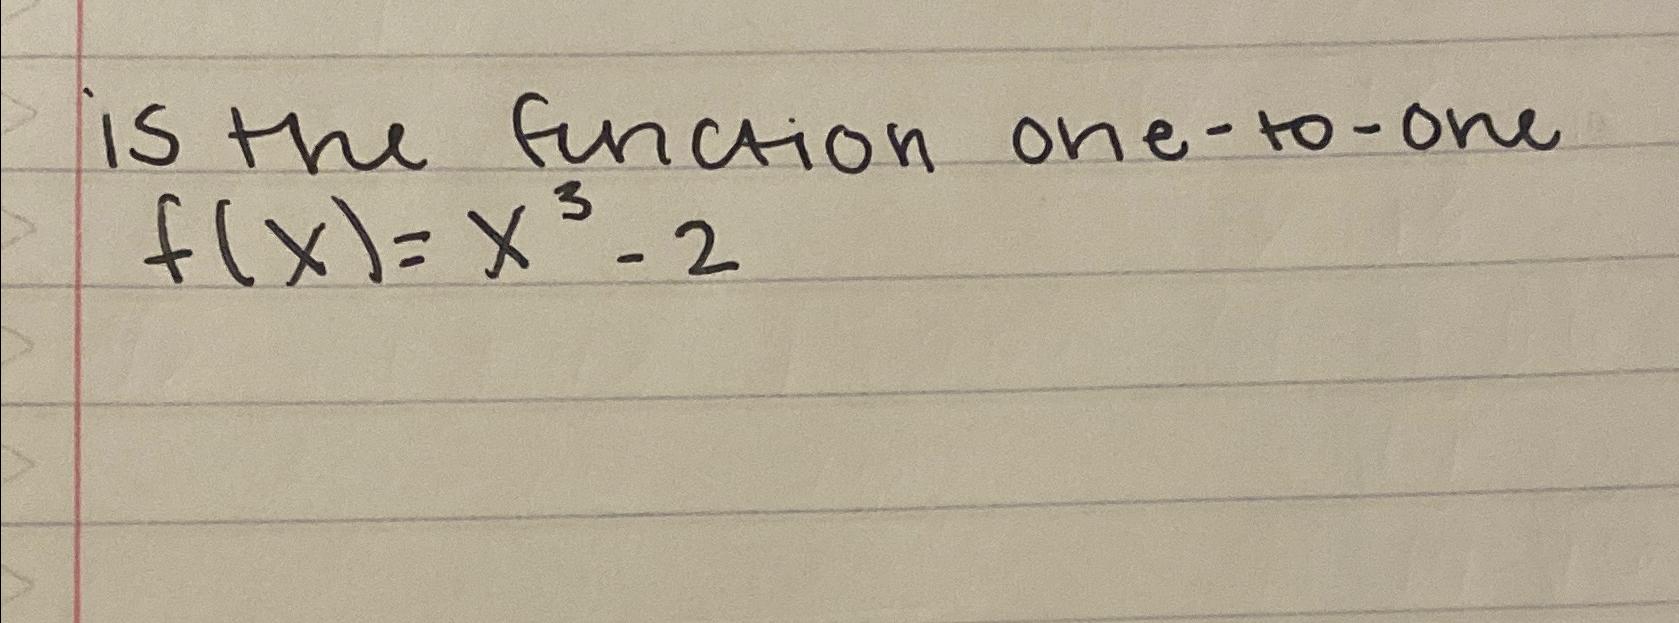 is the function one-to-one
f(x) = x³ - 2